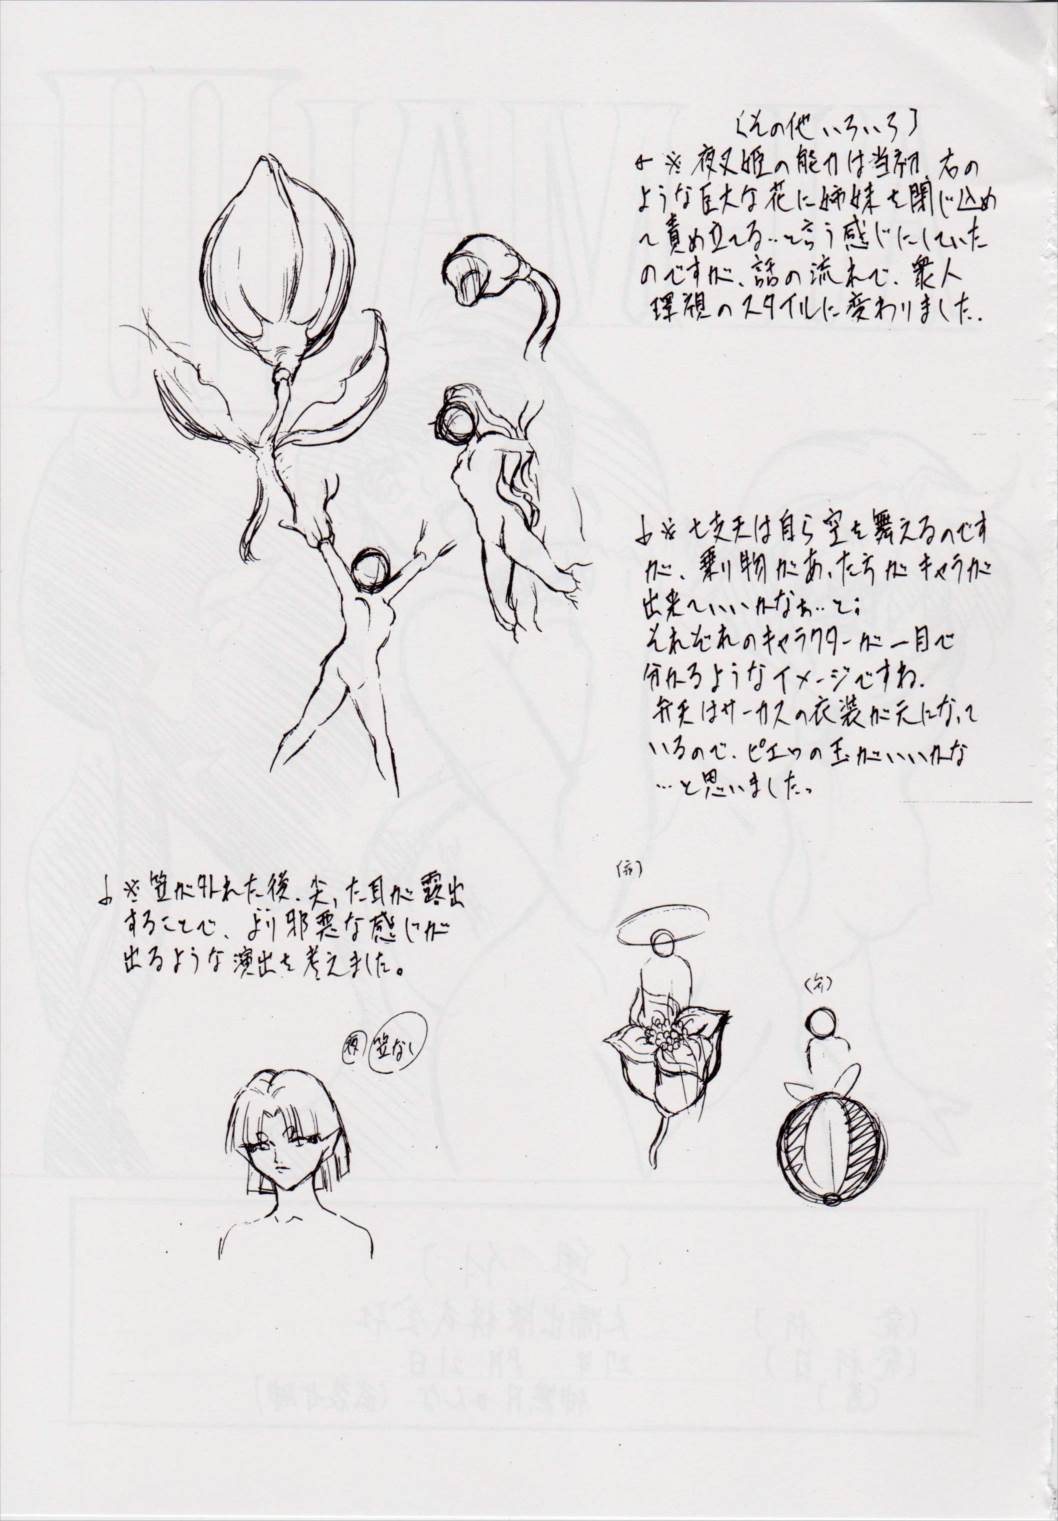 (その他いろいろ)
←※夜叉姫の能力は当初、右の
ような巨大な花に姉妹を閉じ込め
て責め立てる…と言う感じにしていた
のですが、話の流れで、衆人
環視のスタイルに変わりました.
↓※七支天は自ら空を舞えるのです
が、乗り物があったちがキャラが
出来ていいかなぁ…と。
それぞれのキャラクターが一目で
分かるようなイメージですね.
弁天はサーカスの衣装が元になって
いるので、ピエロの玉がいいかな
…と思いました。
↓※笠が外れた後、尖った耳が露出
することで、より邪悪な感じが
出るような演出を考えました。
(夜) 笠なし
(弁)